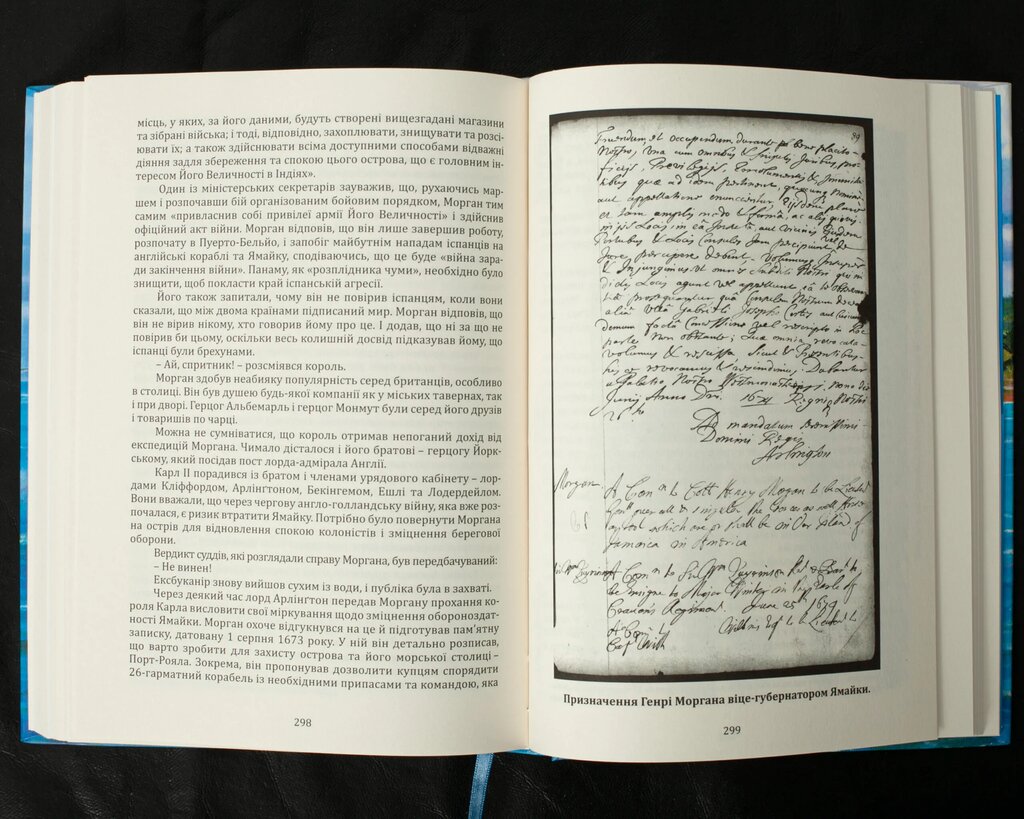 місць, у яких, за його даними, будуть створені вищезгадані магазини
та зібрані війська; і тоді, відповідно, захоплювати, знищувати та розсі-
ювати їх; а також здійснювати всіма доступними способами відважні
діяння задля збереження та спокою цього острова, що є головним ін-
тересом Його Величності в Індіях».
Один із міністерських секретарів зауважив, що, рухаючись мар-
шем і розпочавши бій організованим бойовим порядком, Морган тим
самим «привласнив собі привілеї армії Його Величності» і здійснив
офіційний акт війни. Морган відповів, що він лише завершив роботу,
розпочату в Пуерто-Бельйо, і запобіг майбутнім нападам іспанців на
англійські кораблі та Ямайку, сподіваючись, що це буде «війна зара-
ди закінчення війни». Панаму, як «розплідника чуми», необхідно було
знищити, щоб покласти край іспанській агресії.
Його також запитали, чому він не повірив іспанцям, коли вони
сказали, що між двома країнами підписаний мир. Морган відповів, що
він не вірив нікому, хто говорив йому про це. І додав, що ні за що не
повірив би цьому, оскільки весь колишній досвід підказував йому, що
іспанці були брехунами.
– Ай, спритник! – розсміявся король.
Морган здобув неабияку популярність серед британців, особливо
в столиці. Він був душею будь-якої компанії як у міських тавернах, так
і при дворі. Герцог Альбемарль і герцог Монмут були серед його друзів
і товаришів по чарці.
Можна не сумніватися, що король отримав непоганий дохід від
експедицій Моргана. Чимало дісталося і його братові – герцогу Йорк-
ському, який посідав пост лорда-адмірала Англії.
Карл II порадився із братом і членами урядового кабінету – лор-
дами Кліффордом, Арлінґтоном, Бекінгемом, Ешлі та Лодердейлом.
Вони вважали, що через чергову англо-голландську війну, яка вже роз-
почалася, є ризик втратити Ямайку. Потрібно було повернути Моргана
на острів для відновлення спокою колоністів і зміцнення берегової
оборони.
Вердикт суддів, які розглядали справу Моргана, був передбачуваний:
– Не винен!
Ексбуканір знову вийшов сухим із води, і публіка була в захваті.
Через деякий час лорд Арлінґтон передав Моргану прохання ко-
роля Карла висловити свої міркування щодо зміцнення обороноздат-
ності Ямайки. Морган охоче відгукнувся на це й підготував пам’ятну
записку, датовану 1 серпня 1673 року. У ній він детально розписав,
що варто зробити для захисту острова та його морської столиці –
Порт-Рояла. Зокрема, він пропонував дозволити купцям спорядити
26-гарматний корабель із необхідними припасами та командою, яка
298
89
et occupendum durante
Nostro, una cum omnibus
Volumus
non obstante
Palatio Nostro
Anno Dni.
Ad mandatum
Domini Regis
Arlington
Morgan
A Com to Coll Henry Morgan to be
which are or shall be in Our Island of
Jamaica in America
to be
June 25th
A Com to
Призначення Генрі Моргана віце-губернатором Ямайки.
299